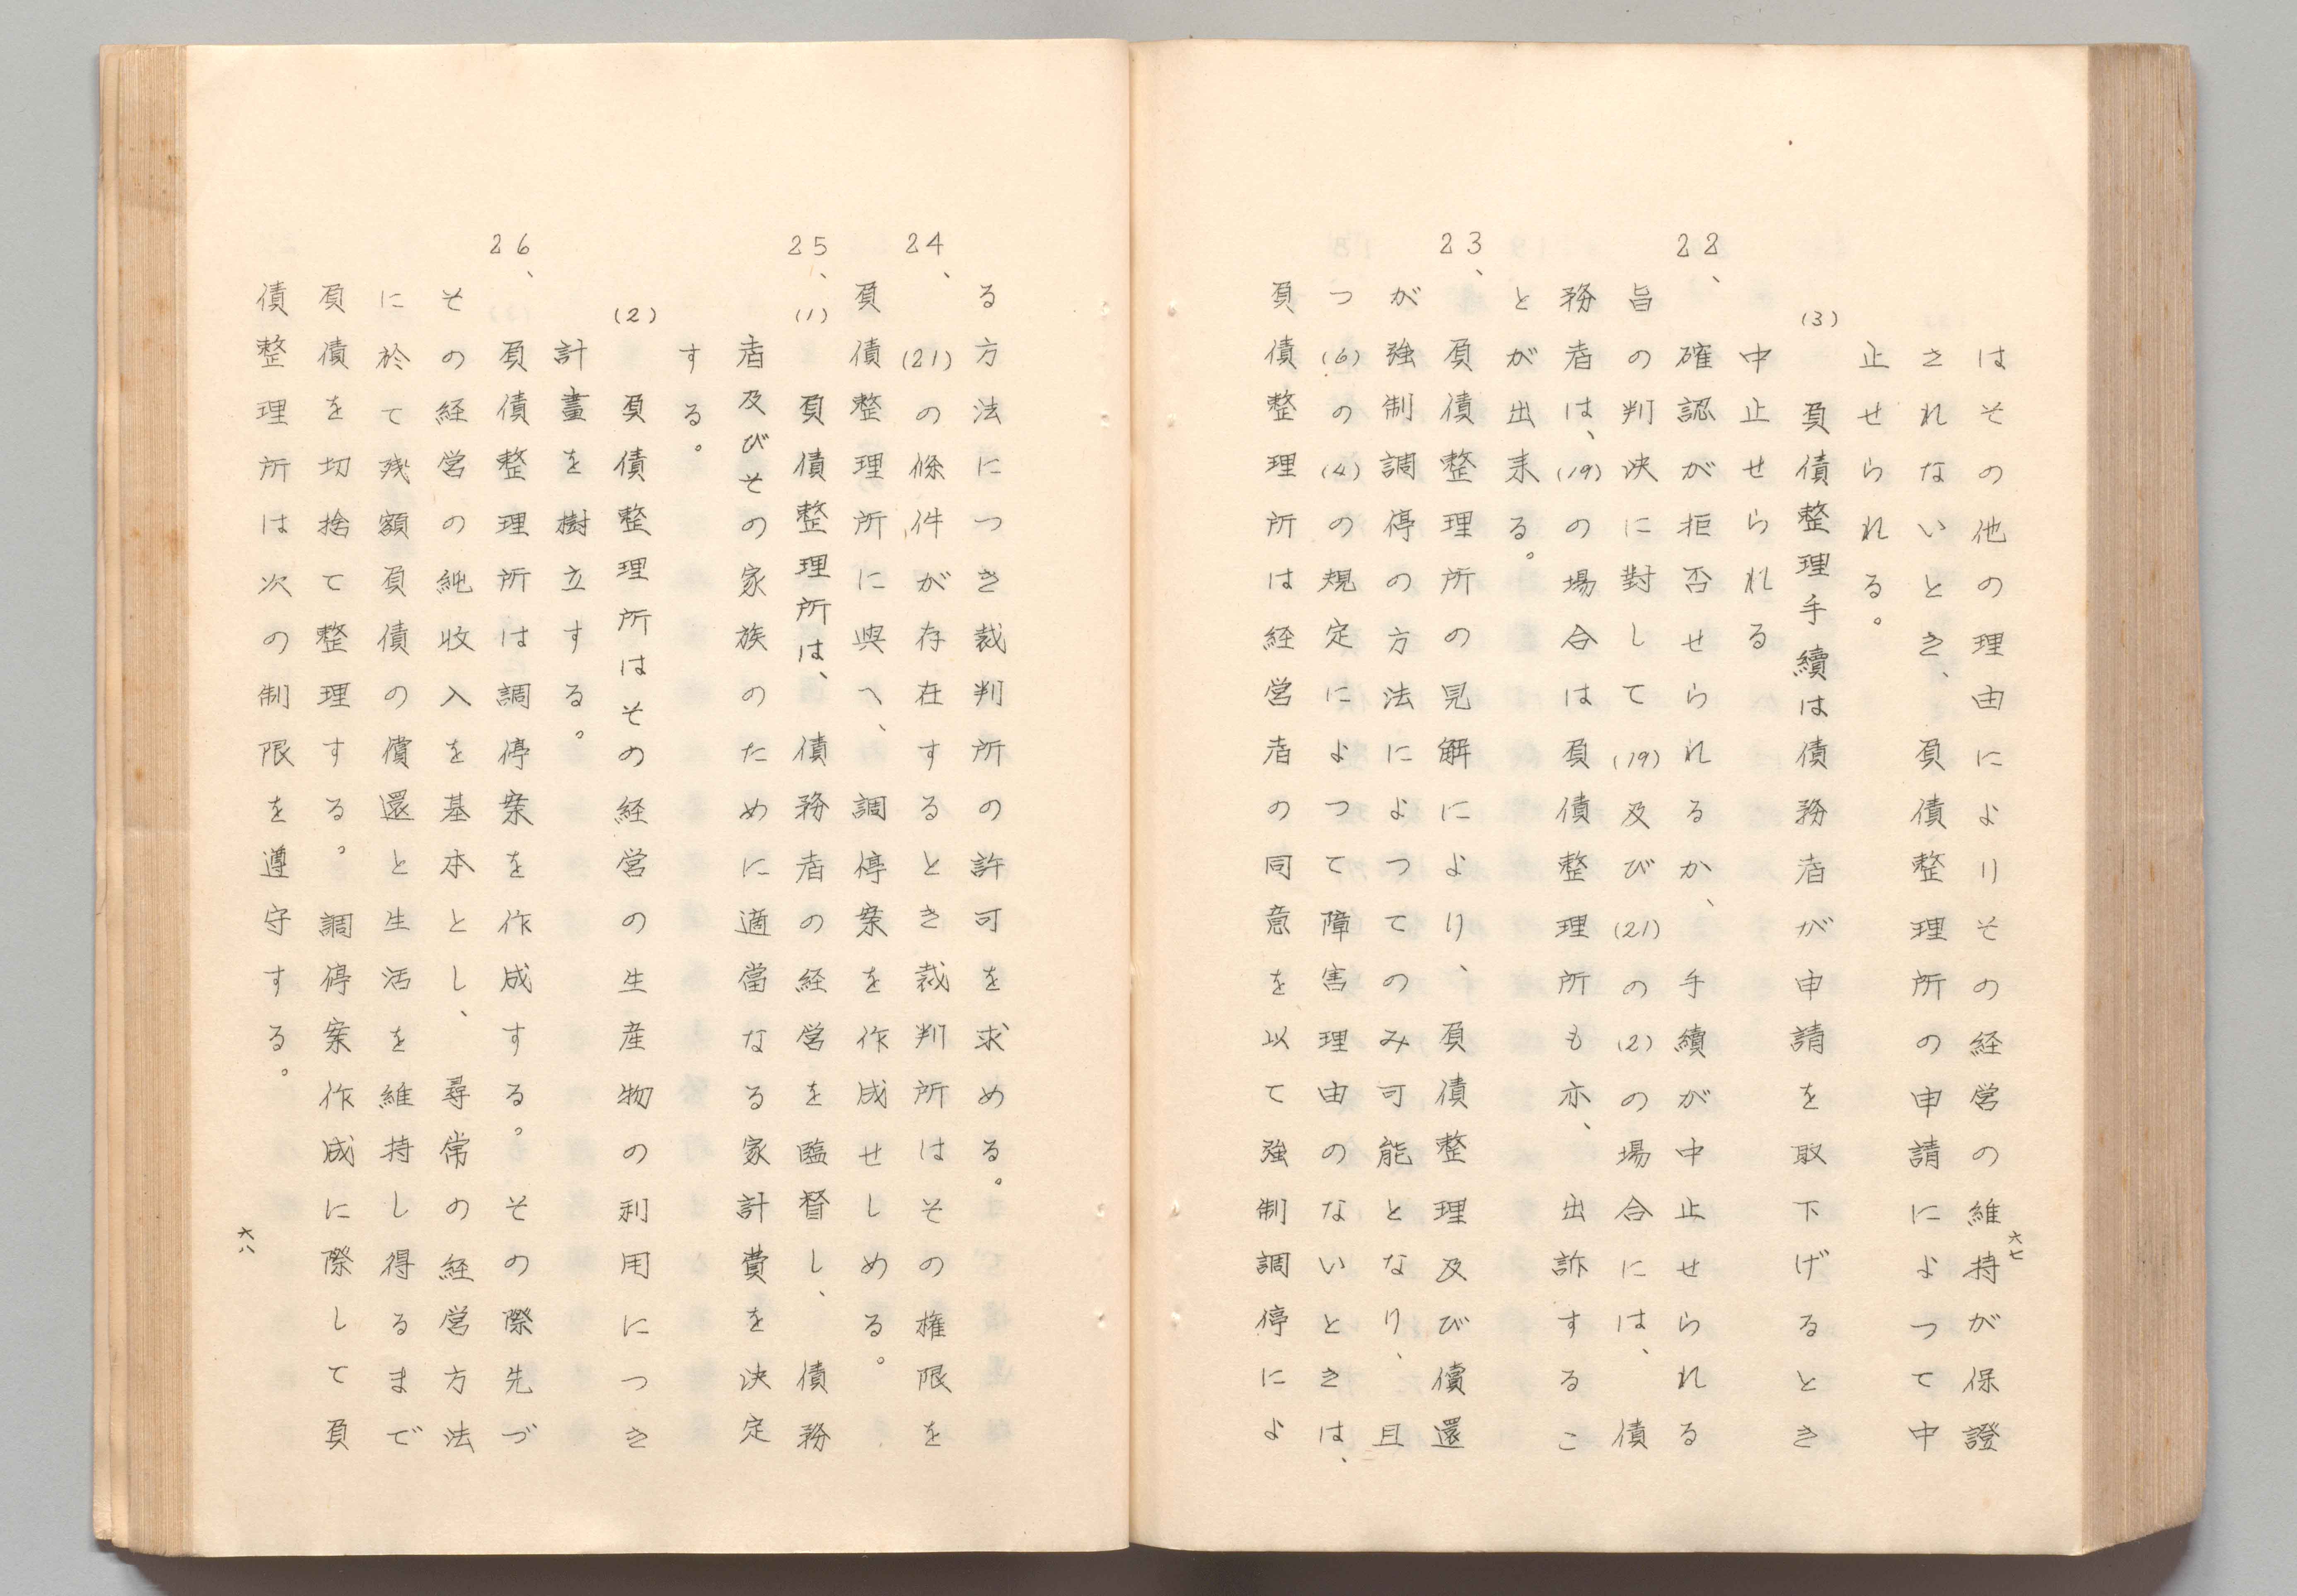 はその他の理由によりその経営の維持が保證
されないとき、負債整理所の申請によつて中
止せられる。
(3) 負債整理手續は債務者が申請を取下げるとき
中止せられる
22、確認が拒否せられるか、手續が中止せられる
旨の判決に對して(19)及び(21)の(2)の場合には、債
務者は、(19)の場合は負債整理所も亦、出訴するこ
とが出来る。
23、負債整理所の見解により、負債整理及び償還
が強制調停の方法によつてのみ可能となり、且
つ(6)の(4)の規定によつて障害理由のないときは、
負債整理所は経営者の同意を以て強制調停によ
六七
る方法につき裁判所の許可を求める。
24、(21)の條件が存在するとき裁判所はその権限を
負債整理所に與へ、調停案を作成せしめる。
25、(1) 負債整理所は、債務者の経営を臨督し、債務
者及びその家族のために適當なる家計費を決定
する。
(2) 負債整理所はその経営の生産物の利用につき
計畫を樹立する。
26、負債整理所は調停案を作成する。その際先づ
その経営の純收入を基本とし、尋常の経営方法
に於て残額負債の償還と生活を維持し得るまで
負債を切捨て整理する。調停案作成に際して負
債整理所は次の制限を遵守する。
六八